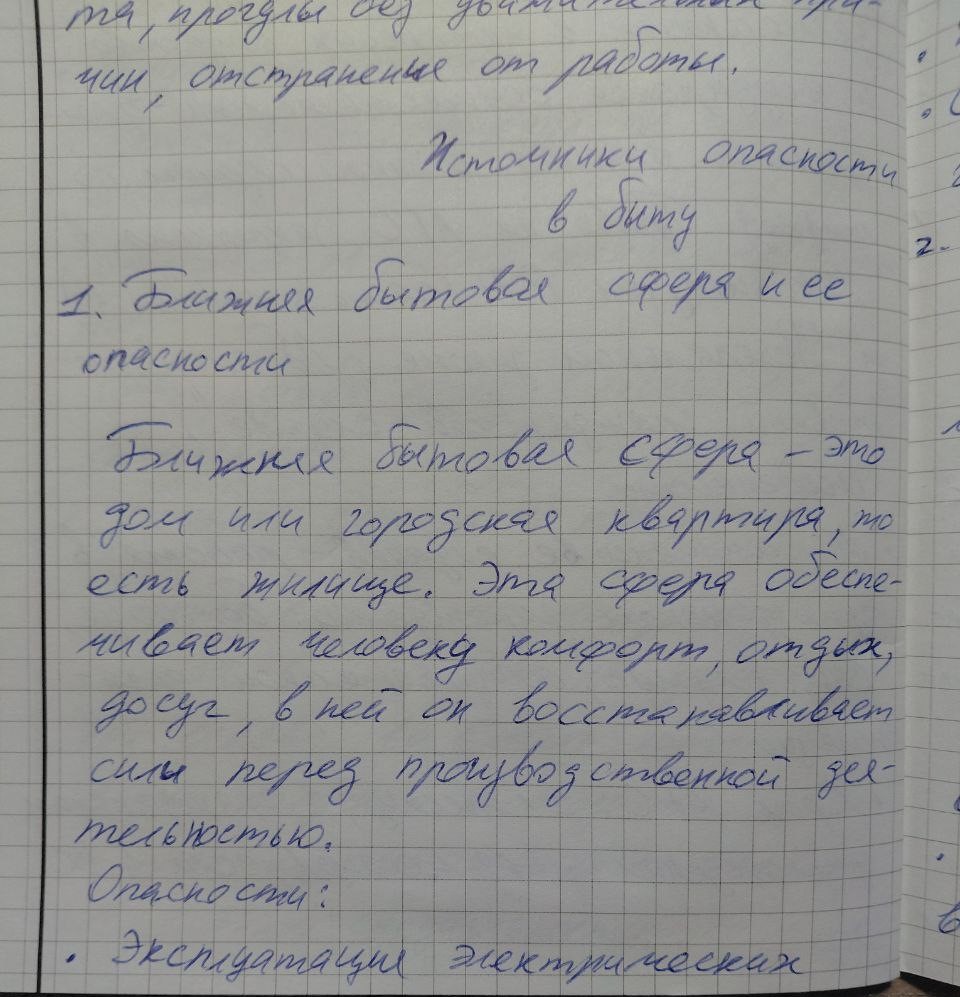 та, прогулы без уважительных при-
чин, отстранение от работы.
Источники опасности
в быту
1. Ближняя бытовая сфера и ее
опасности
Ближняя бытовая сфера – это
дом или городская квартира, то
есть жилище. Эта сфера обеспе-
чивает человеку комфорт, отдых,
досуг, в ней он восстанавливает
силы перед производственной дея-
тельностью.
Опасности:
• Эксплуатация электрических
2.